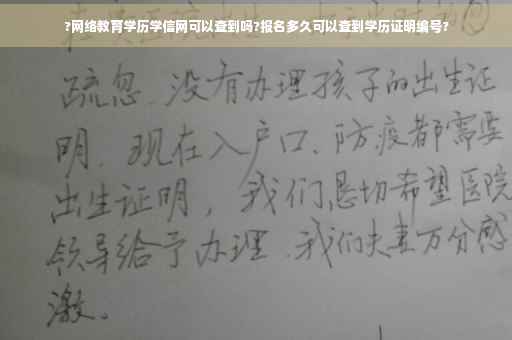 ?网络教育学历学信网可以查到吗?报名多久可以查到学历证明编号?
疏忽、没有办理孩子的出生证
明、现在入户口、防疫都需要
出生证明，我们恳切希望医院
领导给予办理、我们夫妻万分感
激。